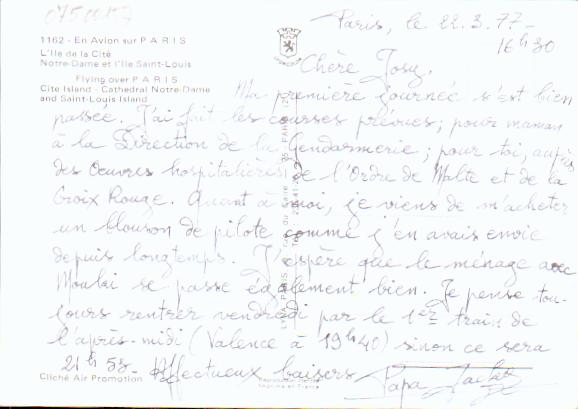 Paris, le 22.3.77-
16h30
1162 - En Avion sur PARIS
L'Ile de la Cité
Notre-Dame et l'Ile Saint-Louis
Flying over PARIS
Cite Island - Cathedral Notre-Dame
and Saint-Louis Island
Chère Josy,
Ma première journée s'est bien
passée. J'ai fait les courses prévues; pour maman
à la Direction de la Gendarmerie; pour toi, auprès
des Oeuvres hospitalières de l'Ordre de Malte et de la
Croix Rouge. Quant à moi, je viens de m'acheter
un blouson de pilote comme j'en avais envie
depuis longtemps. J'espère que le ménage avec
se passe également bien. Je pense tou-
jours rentrer vendredi par le 1er train de
l'après-midi (Valence à 19h40) sinon ce sera
21h58. Affectueux baisers Papa
Cliché Air Promotion
Imprimé en France